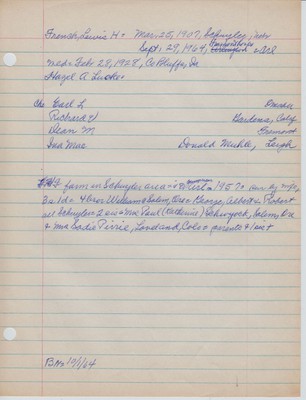 French, Lewis H. Mar. 25, 1907, Schuyler, Nebr
Sept. 29, 1964,
Md. Feb. 28, 1928, Co Bluffs, Ia
Hazel A. Lucke.
Ch. Earl L Omaha
Richard H Gardena, Calif
Dean M. Fremont
Ina Mae Donald Muhle, Leigh
farm in Schuyler area - retired in 1957. sur. by wife,
3s 1d - 4 bros William, Salem, Ore. George, Albert & Robert
all Schuyler. 2 sis - Mrs Paul (Catherine) Salem, Ore
& Mrs Sadie Pirrie, Loveland, Colo. parents & 1 sist
10/1/64